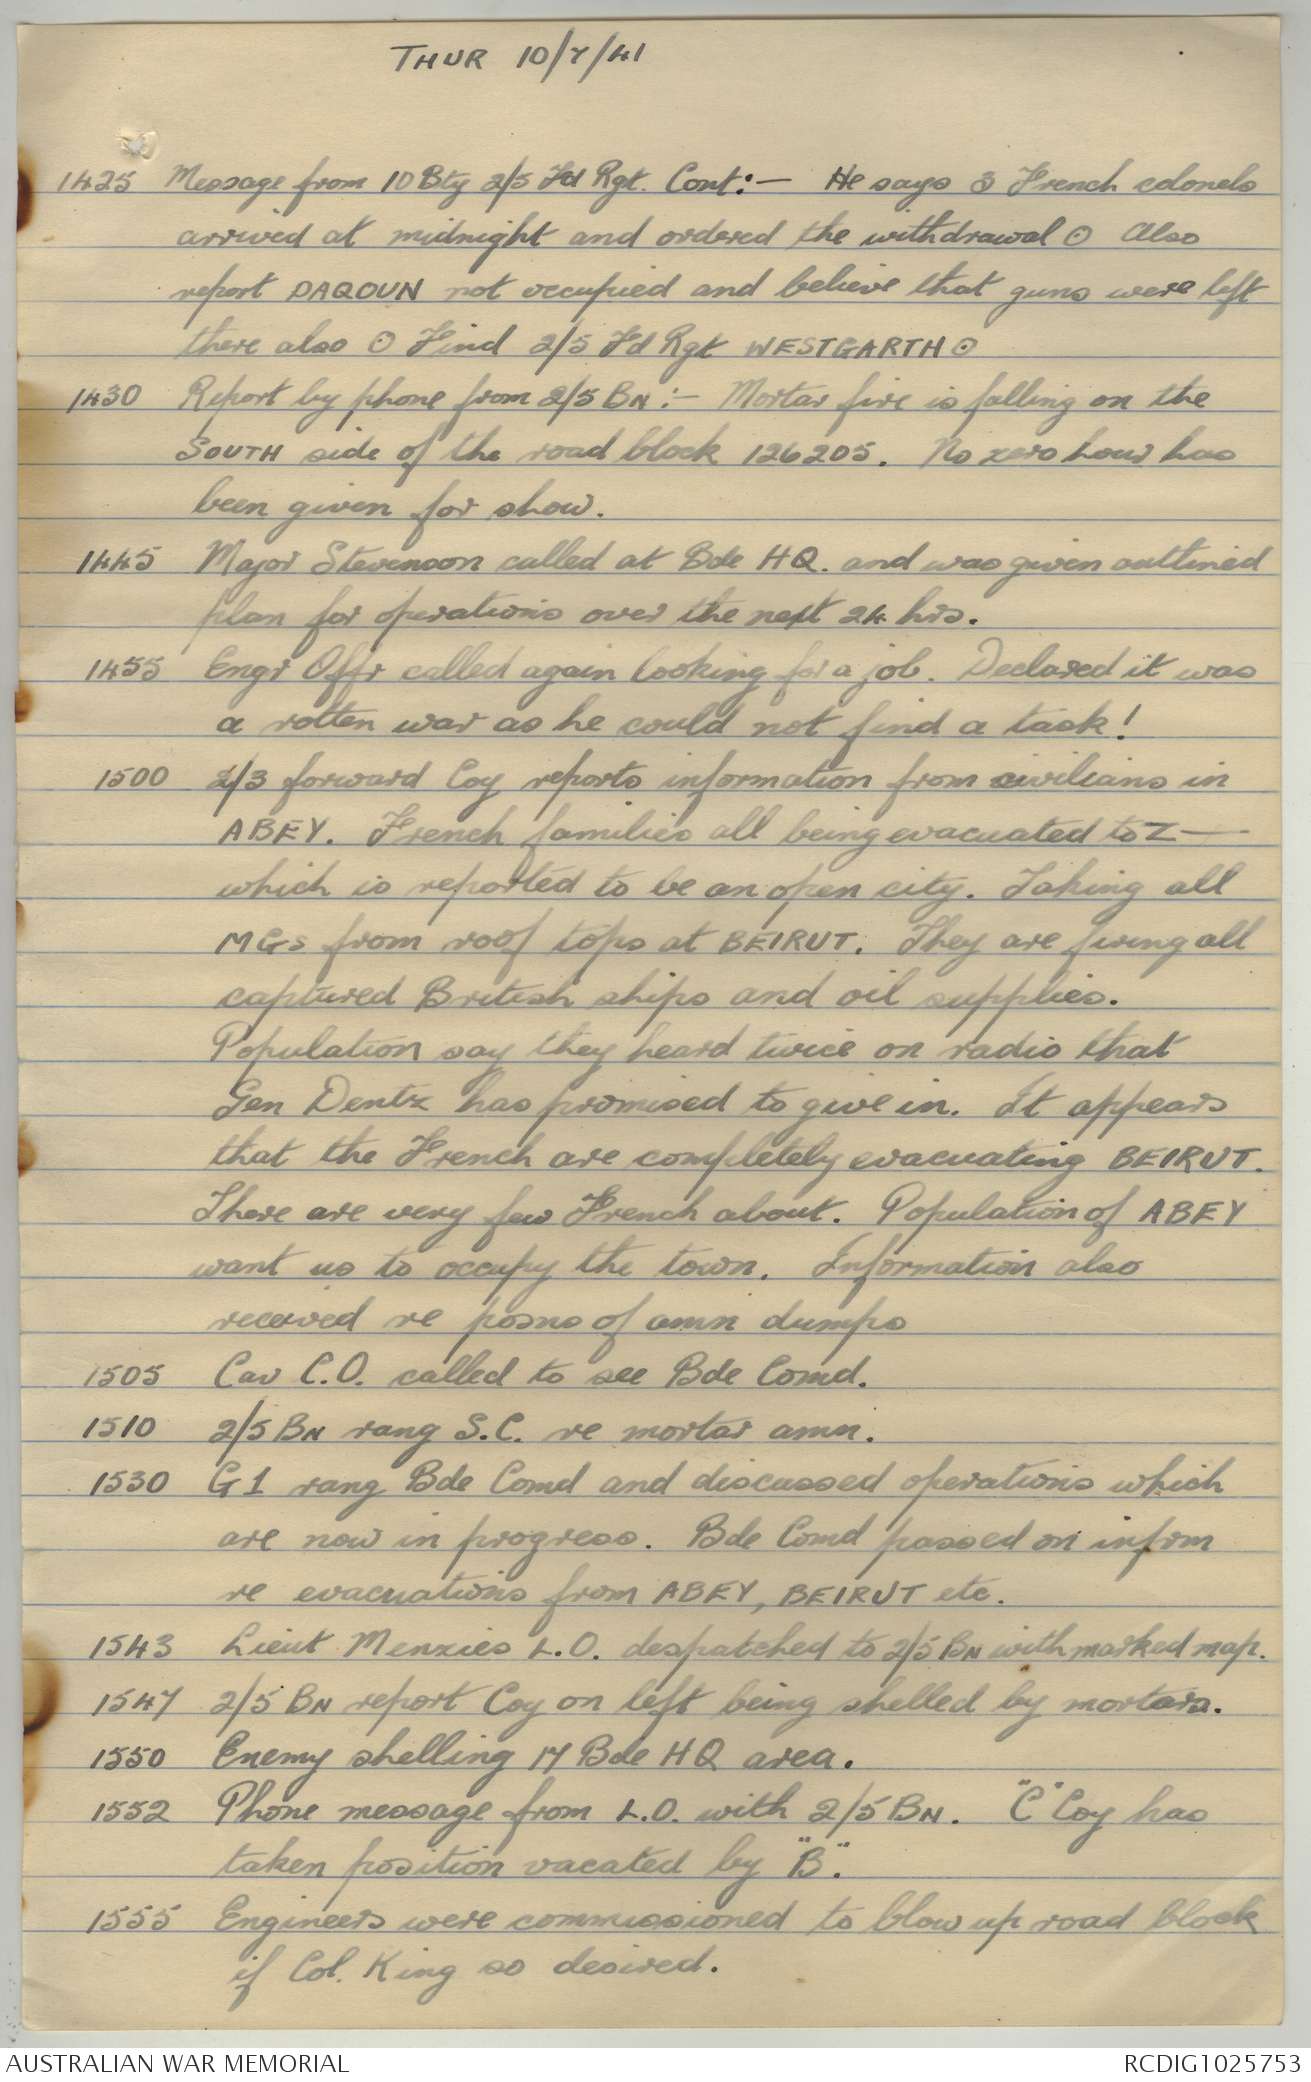 THUR 10/7/41
1425 Message from 10 Bty 2/5 Fd Rgt. Cont:- He says 3 French colonels
arrived at midnight and ordered the withdrawal ⊙ Also
report DAQOUN not occupied and believe that guns were left
there also ⊙ Find 2/5 Fd Rgt WESTGARTH ⊙
1430 Report by phone from 2/5 BN :- Mortar fire is falling on the
SOUTH side of the road block 126205. No zero hour has
been given for show.
1445 Major Stevenson called at Bde HQ. and was given outlined
plan for operations over the next 24 hrs.
1455 Engr Offr called again looking for a job. Declared it was
a rotten war as he could not find a task!
1500 2/3 forward Coy reports information from civilians in
ABEY. French families all being evacuated to Z—
which is reported to be an open city. Taking all
MGs from roof tops at BEIRUT. They are firing all
captured British ships and oil supplies.
Population say they heard twice on radio that
Gen Dentz has promised to give in. It appears
that the French are completely evacuating BEIRUT.
There are very few French about. Population of ABEY
want us to occupy the town. Information also
received re posns of amn dumps
1505 Cav C.O. called to see Bde Comd.
1510 2/5 BN rang S.C. re mortar amn.
1530 G1 rang Bde Comd and discussed operations which
are now in progress. Bde Comd passed on infrm
re evacuations from ABEY, BEIRUT etc.
1543 Lieut Menzies L.O. despatched to 2/5 BN with marked map.
1547 2/5 BN report Coy on left being shelled by mortars.
1550 Enemy shelling 17 Bde HQ area.
1552 Phone message from L.O. with 2/5 BN. "C" Coy has
taken position vacated by "B".
1555 Engineers were commissioned to blow up road block
if Col. King so desired.
AUSTRALIAN WAR MEMORIAL
RCDIG1025753